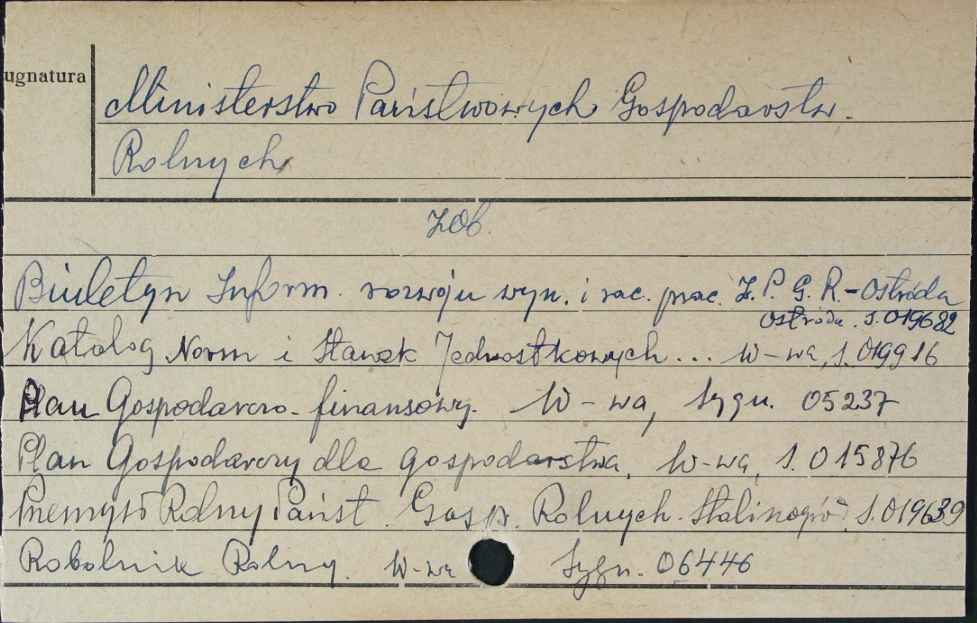 ugnatura
Ministerstwo Państwowych Gospodarstw.
Rolnych
zob.
Biuletyn Inform. rozwoju wyn. i rac. prac. Z.P.G.R.-Ostróda
Ostróda. S.019682
Katalog Norm i Stawek Jednostkowych... W-wa, S.019916
Plan Gospodarczo-finansowy. W-wa, Sygn. 05237
Plan Gospodarczy dla gospodarstwa, W-wa, S.015876
Przemysł Rolny Państ. Gosp. Rolnych. Stalinogród S.019639
Robotnik Rolny. W-wa Sygn. 06446